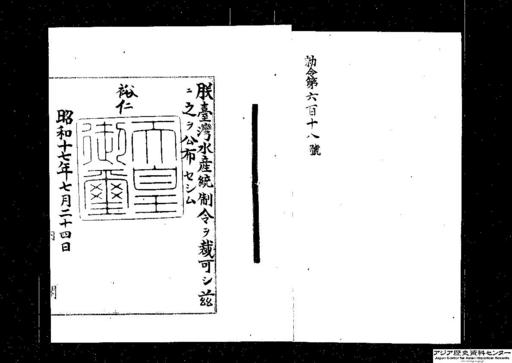 勅令第六百十八號
朕臺灣水産統制令ヲ裁可シ茲
ニ之ヲ公布セシム
裕仁
天皇御璽
昭和十七年七月二十四日
内閣
アジア歴史資料センター
Japan Center for Asian Historical Records